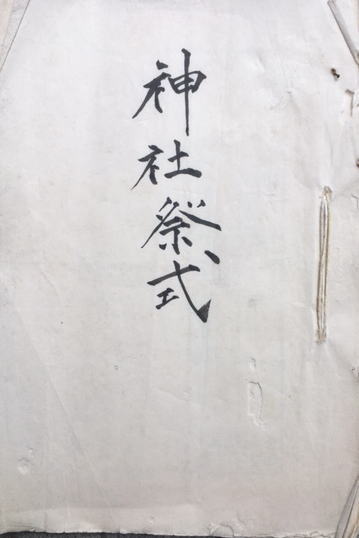 神社祭式